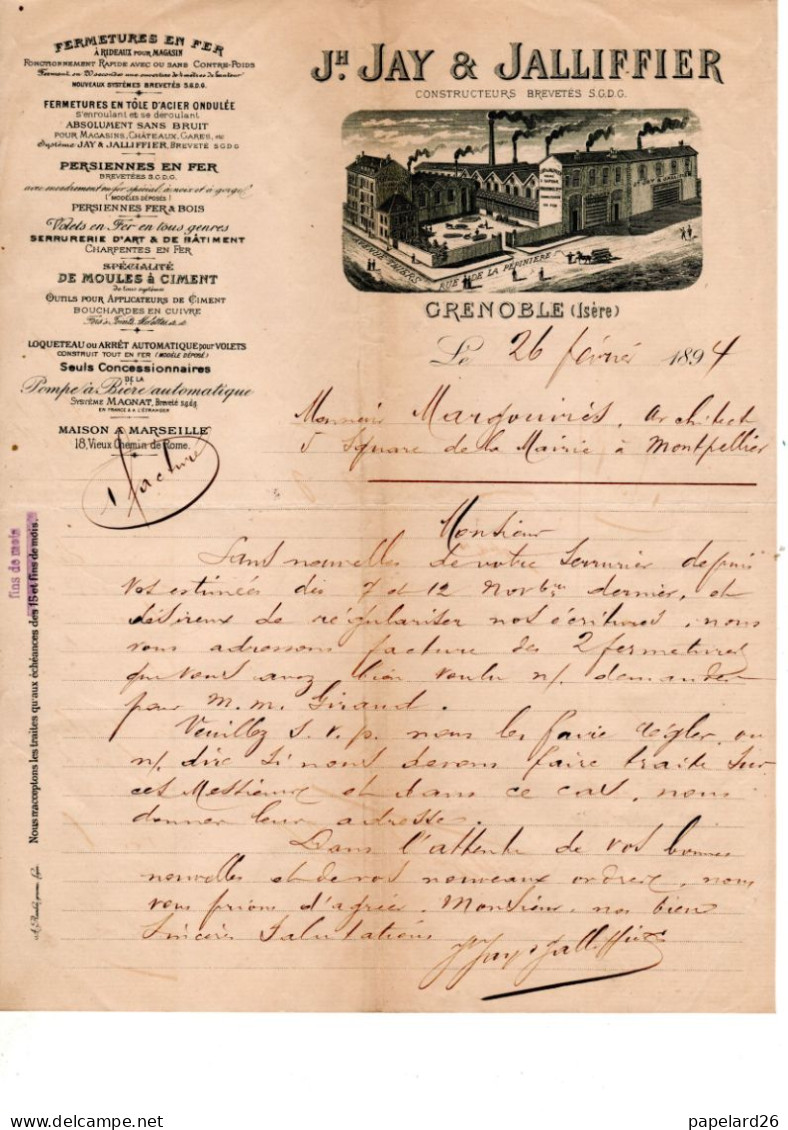 FERMETURES EN FER
À RIDEAUX POUR MAGASIN
FONCTIONNEMENT RAPIDE AVEC OU SANS CONTRE-POIDS
NOUVEAUX SYSTÈMES BREVETÉS S.G.D.G.
FERMETURES EN TÔLE D'ACIER ONDULÉE
S'enroulant et se déroulant
ABSOLUMENT SANS BRUIT
POUR MAGASINS, CHÂTEAUX, GARES, etc
Système JAY & JALLIFFIER, BREVETÉ S.G.D.G
PERSIENNES EN FER
BREVETÉES S.G.D.G.
(MODÈLES DÉPOSÉS)
PERSIENNES FER & BOIS
Volets en Fer en tous genres
SERRURERIE D'ART & DE BÂTIMENT
CHARPENTES EN FER
SPÉCIALITÉ
DE MOULES à CIMENT
de tous systèmes
OUTILS POUR APPLICATEURS DE CIMENT
BOUCHARDES EN CUIVRE
LOQUETEAU ou ARRÊT AUTOMATIQUE pour VOLETS
CONSTRUIT TOUT EN FER (MODÈLE DÉPOSÉ)
Seuls Concessionnaires
DE LA
Pompe à Bière automatique
SYSTÈME MAGNAT, Breveté s.g.d.g.
EN FRANCE & A L'ÉTRANGER
MAISON A MARSEILLE
18, Vieux Chemin de Rome.
JH. JAY & JALLIFFIER
CONSTRUCTEURS BREVETÉS S.G.D.G.
JH JAY & JALLIFFIER
RUE DE LA PÉPINIÈRE
GRENOBLE (Isère)
Le 26 février 1894
Monsieur Margouirès, Architect
5 Square de la Mairie à Montpellier
1 facture
Monsieur
Sans nouvelles de votre serrurier depuis
vos estimées des 7 et 12 Novbre dernier, et
désireux de régulariser nos écritures, nous
vous adressons facture des 2 fermetures
que vous avez bien voulu n/. demander
pour M. M. Giraud.
Veuillez s. v. p. nous les faire régler, ou
n/. dire si nous devons faire traite sur
ces Messieurs et dans ce cas, nous
donner leur adresse.
Dans l'attente de vos bonnes
nouvelles et de vos nouveaux ordres, nous
vous prions d'agréer, Monsieur, nos bien
sincères salutations
Jh Jay & Jalliffier
fins de mois
Nous n'acceptons les traites qu'aux échéances des 15 et fins de mois.
papelard26